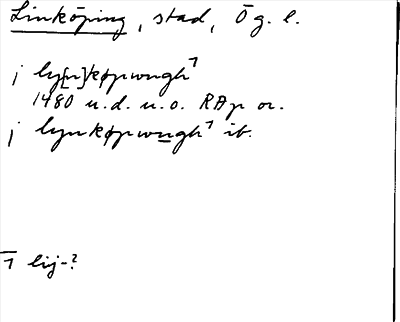 Linköping, stad, Ög. l.
j ly[n]køpwngh⁊
1480 u.d. u.o. RAp or.
j lynkøpwngh⁊ ib.
⁊ lij-?